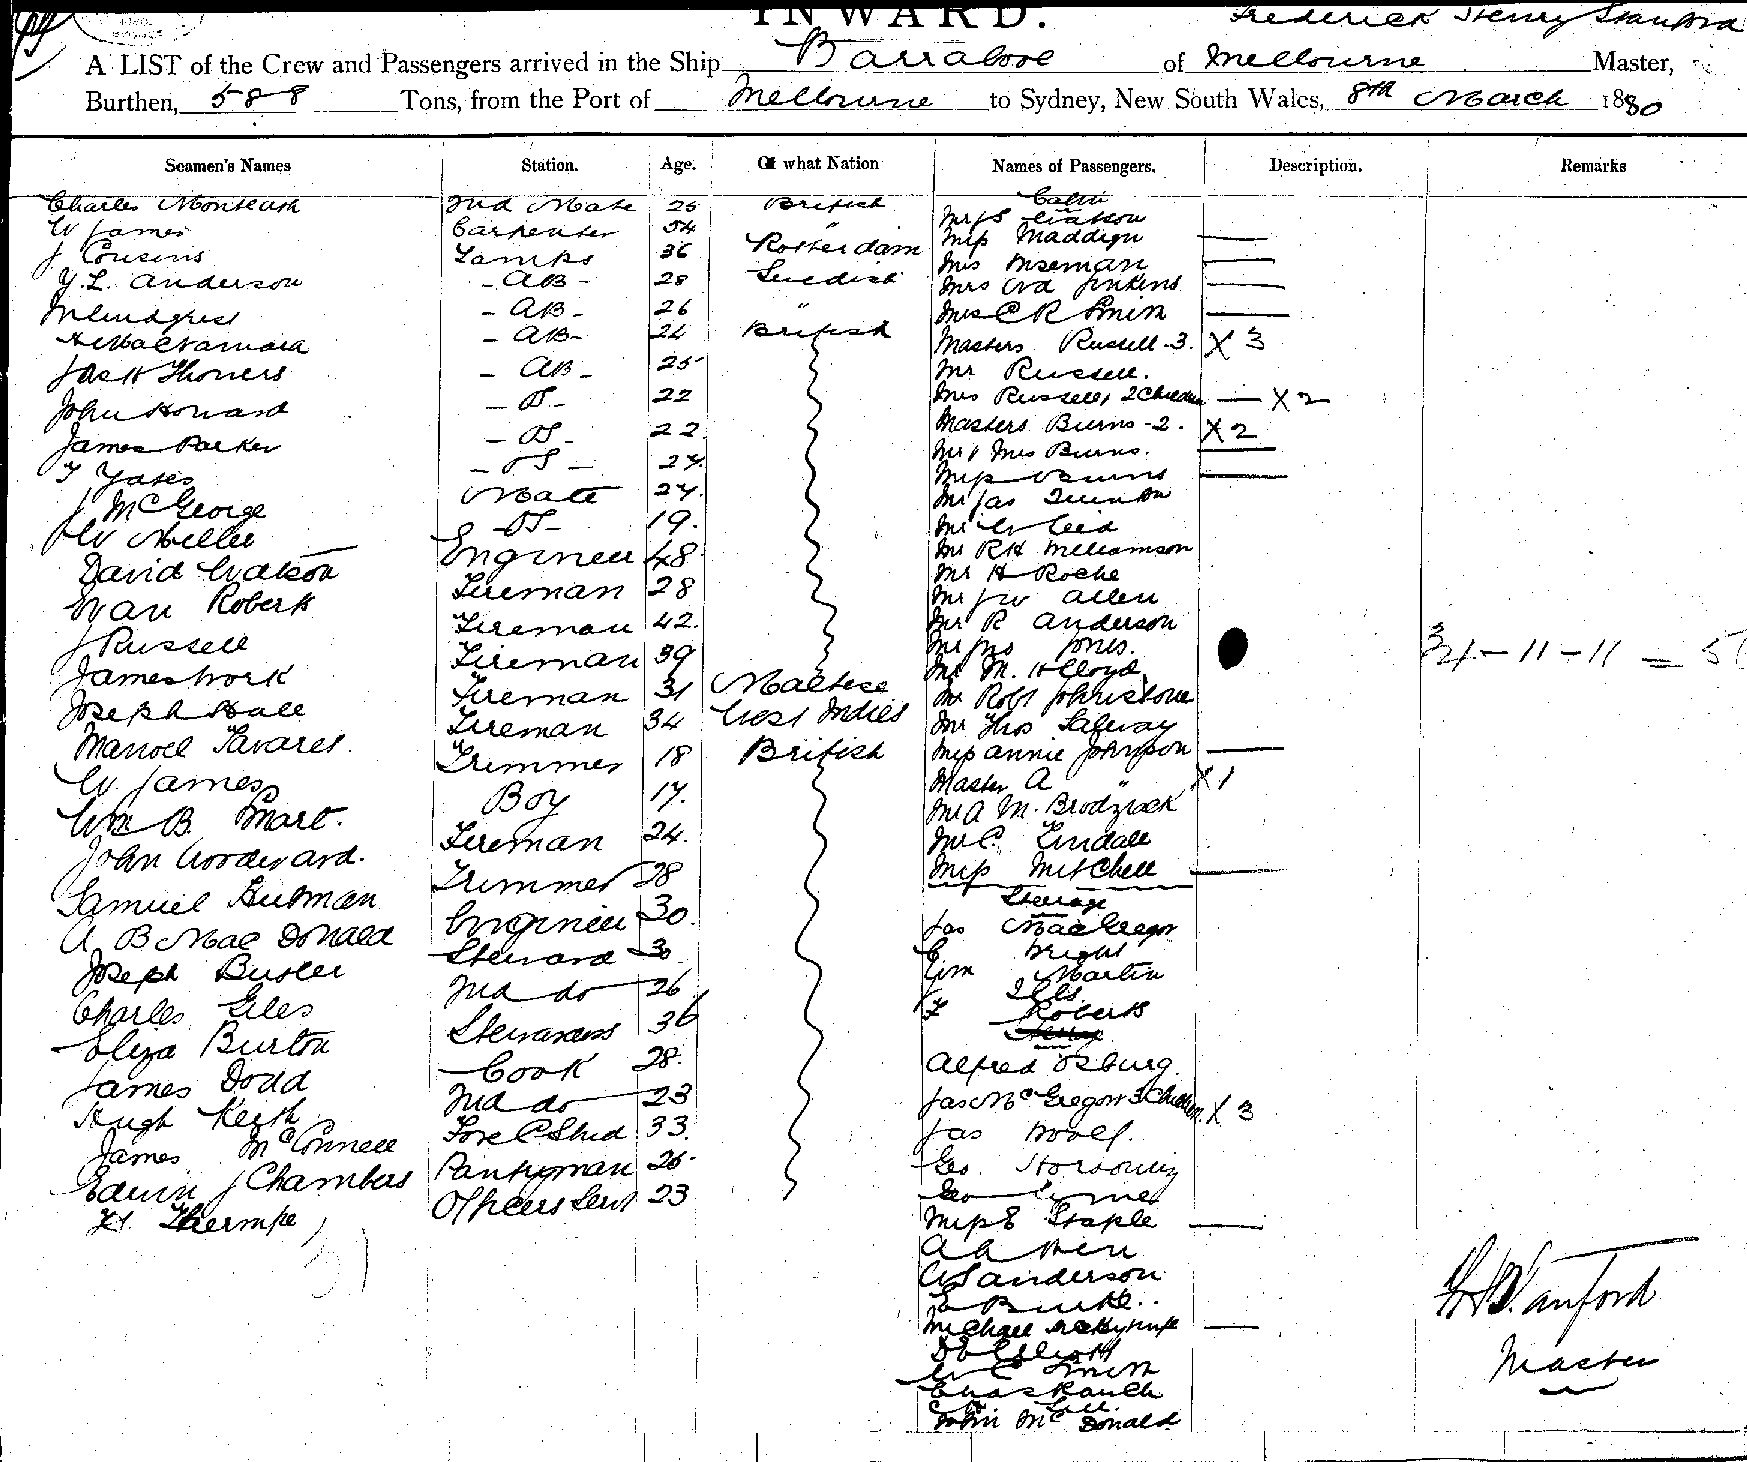 INWARD.
Frederick Henry Stanford
A LIST of the Crew and Passengers arrived in the Ship Barrabool of Melbourne Master,
Burthen, 588 Tons, from the Port of Melbourne to Sydney, New South Wales, 8th March 1880
Seamen's Names Station. Age. Of what Nation Names of Passengers. Description. Remarks
Charles Monteath 2nd Mate 25 British
W James Carpenter 54 "
J Cousins Lamps 36 Rotterdam
Y.L. Anderson - AB - 28 Swedish
- AB - 26 "
A MacNamara - AB - 26 British
- AB - 25
John Howard - OS - 22
James Parker - OS - 22
T Yates - OS - 24
J McGeorge Mate 24
W Miller - OS - 19
David Watson Engineer 48
Evan Roberts Fireman 28
J Russell Fireman 42
James Work Fireman 39
Joseph Hall Fireman 31 Maltese
Manoel Tavares Fireman 34 West Indies
W James Trimmer 18 British
Wm B Smart. Boy 17
John Woodward. Fireman 24
Samuel Trimmer 28
A B MacDonald Engineer 30
Joseph Butler Steward 30
Charles Giles 2nd do 26
Eliza Burton Stewardess 36
James Dodd Cook 28
Hugh Keith 2nd do 23
James McConnell Fore C Stwd 33
Edwin J Chambers Pantryman 26
Officers Servt 23
Cabin
Mr J S Watson
Miss Maddign
Mrs Wiseman
Mrs Jenkins
Mrs C R Smith
Masters Russell - 3. X 3
Mr Russell.
Mrs Russell, 2 Children X 2
Masters Burns - 2. X 2
Mr & Mrs Burns.
Miss Burns
Mr Jas Quinton
Mr W Reid
Mr R H Williamson
Mr H Roche
Mr J W Allen
Mr R Anderson
Mr Jno Jones.
Mr M. H Lloyd
Mr Robt Johnstone
Mr Thos Salway
Miss Annie Johnson
Master A " X 1
Mr A M. Brodziack
Mr C. Tindall
Miss Mitchell
Steerage
Jas MacGregor
C Wright
Martin
F Roberts
Alfred Osburg.
Jas McGregor 3 Children X 3
Jas Woolf.
Geo.
Miss E Staple
W S Anderson
E Burke..
Michael
D E Elliott
W C Smith
Chas Rauch
John McDonald
34 - 11 - 11 =
F H Stanford
Master